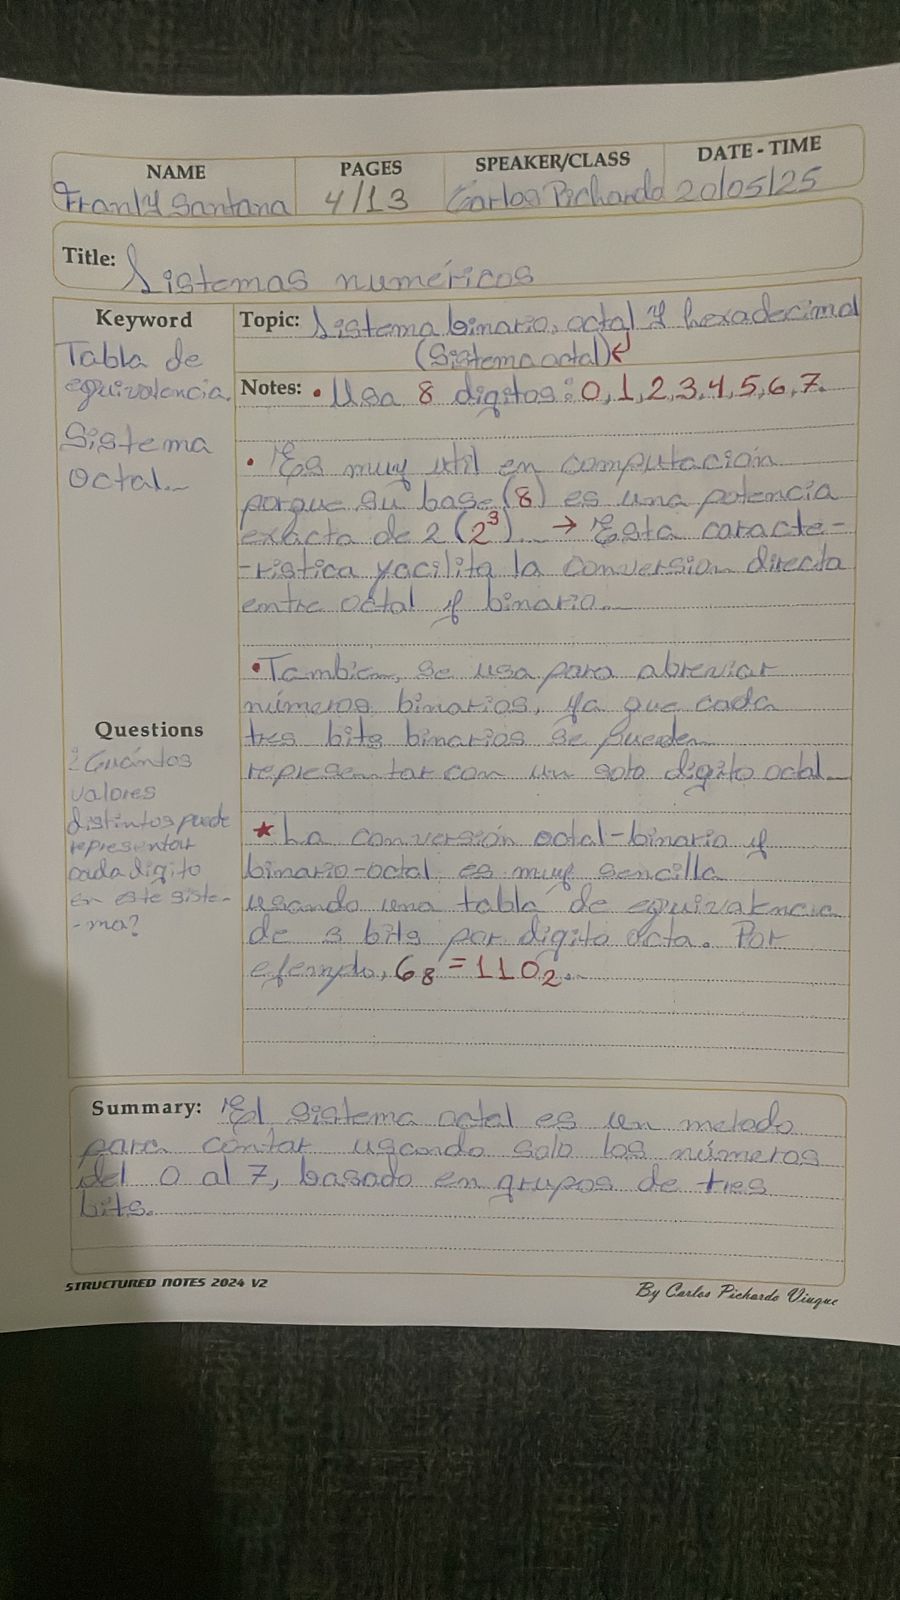 NAME PAGES SPEAKER/CLASS DATE - TIME
Franly Santana 4/13 Carlos Pichardo 20/05/25
Title: Sistemas numéricos
Keyword
Tabla de
equivalencia.
Sistema
Octal.
Topic: Sistema binario, octal y hexadecimal
(Sistema octal)
Notes: • Usa 8 digitos: 0, 1, 2, 3, 4, 5, 6, 7.
• Es muy util en computación
porque su base (8) es una potencia
exacta de 2 (2³). → Esta caracte-
-ristica facilita la conversion directa
entre octal y binario.
• Tambien, se usa para abreviar
números binarios, ya que cada
tres bits binarios se pueden
representar con un solo digito octal.
★ La conversión octal-binario y
binario-octal es muy sencilla
usando una tabla de equivalencia
de 3 bits por digito octa. Por
ejemplo, 6₈ = 110₂.
Questions
¿Cuántos
valores
distintos puede
representar
cada digito
en este siste-
-ma?
Summary: El sistema octal es un metodo
para contar usando solo los números
del 0 al 7, basado en grupos de tres
bits.
STRUCTURED NOTES 2024 V2
By Carlos Pichardo Viuque